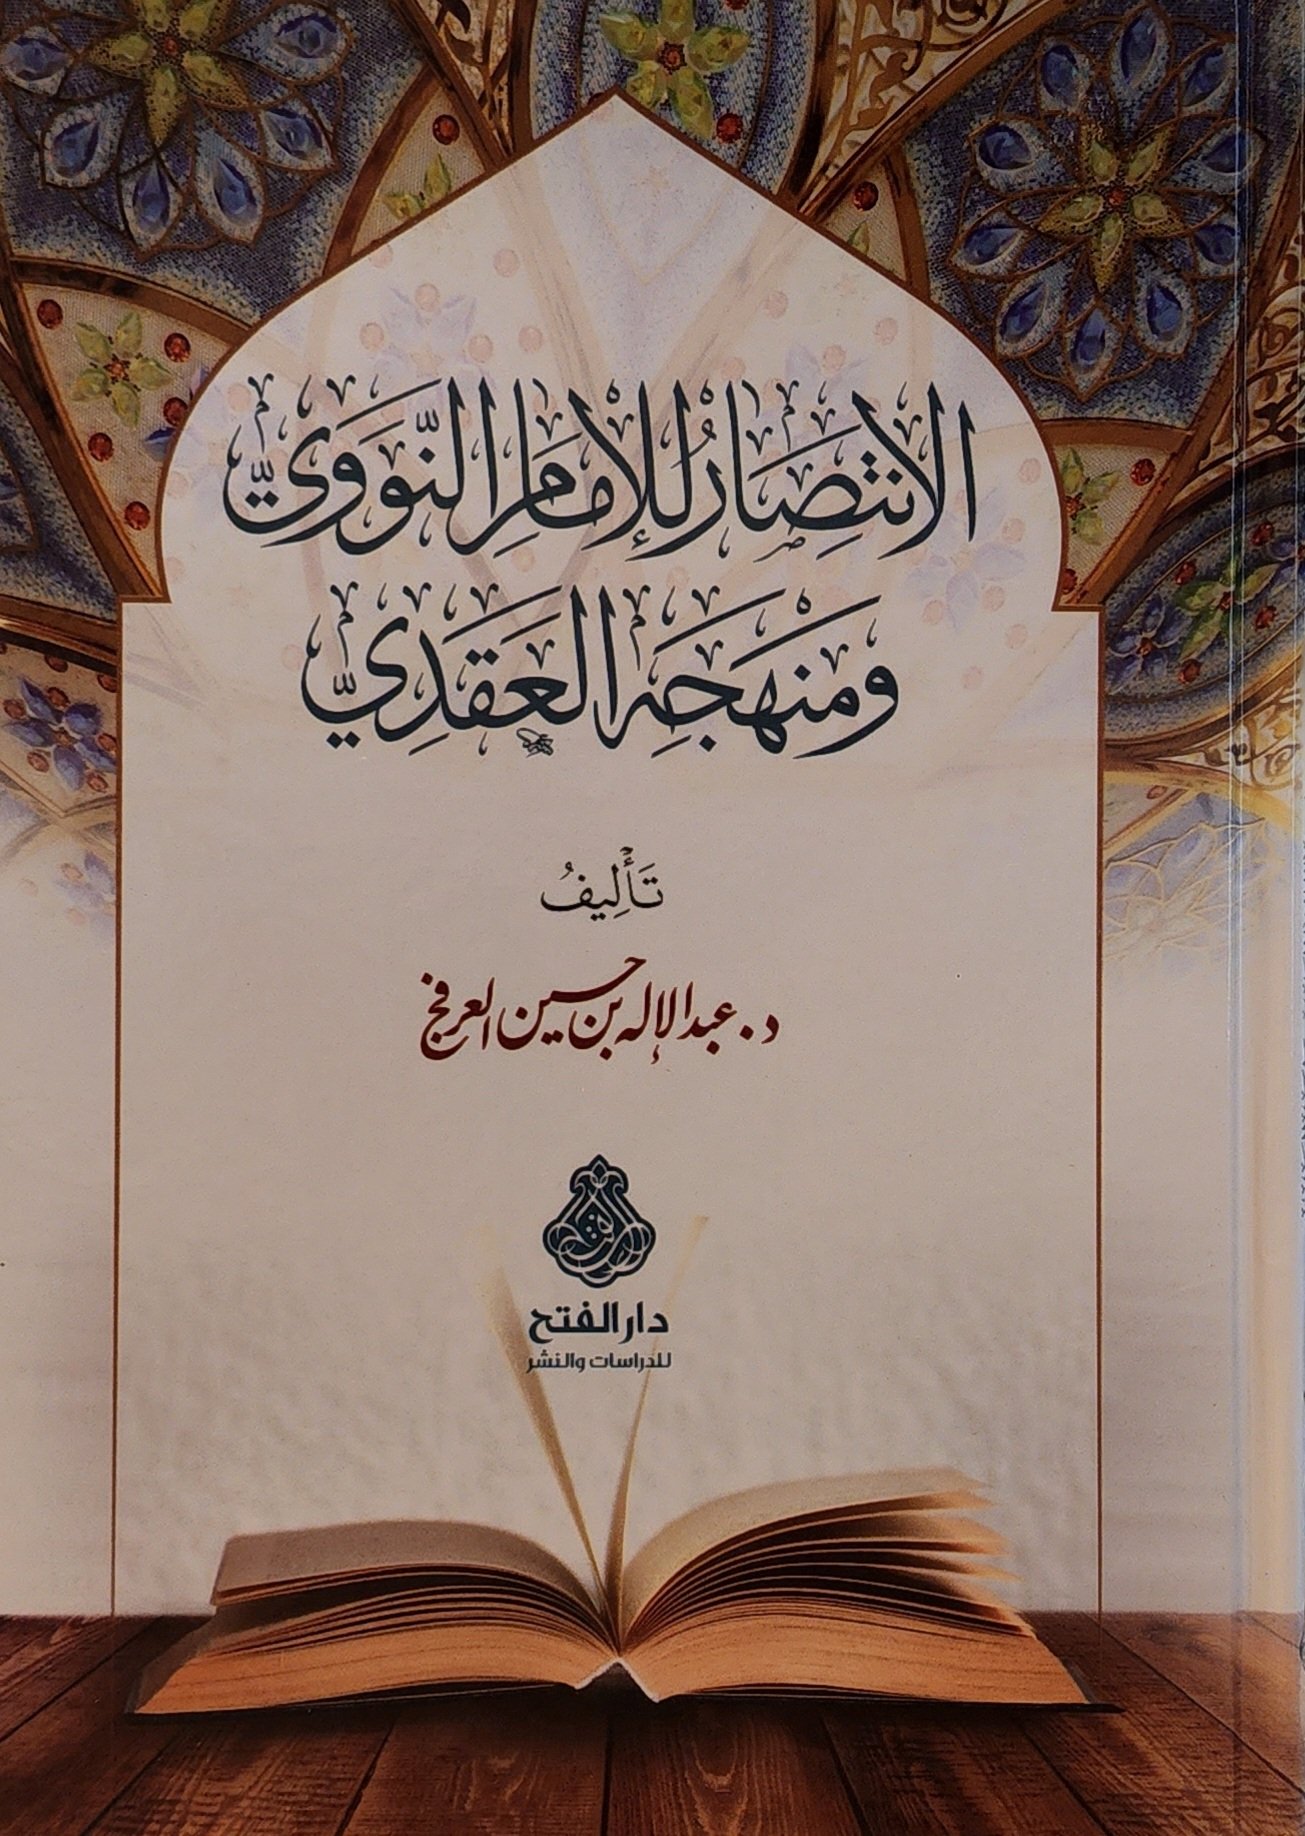 الانتصار للإمام النووي
ومنهجه العقدي
تأليف
د. عبد الإله بن حسين العرفج
دار الفتح
للدراسات والنشر